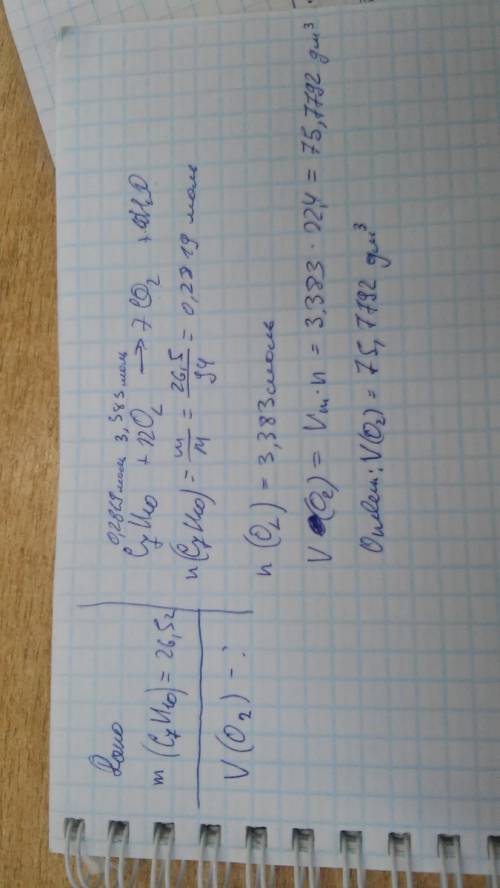 Дано
m (C₇H₁₀) = 26,5г
V (O₂) - ?
0,2819 моль 3,383 моль
C₇H₁₀ + 12O₂ → 7CO₂ + 5H₂O
n (C₇H₁₀) = m/M = 26,5/94 = 0,2819 моль
n (O₂) = 3,383 моль
V (O₂) = Vm · n = 3,383 · 22,4 = 75,7792 дм³
Ответ: V(O₂) = 75,7792 дм³